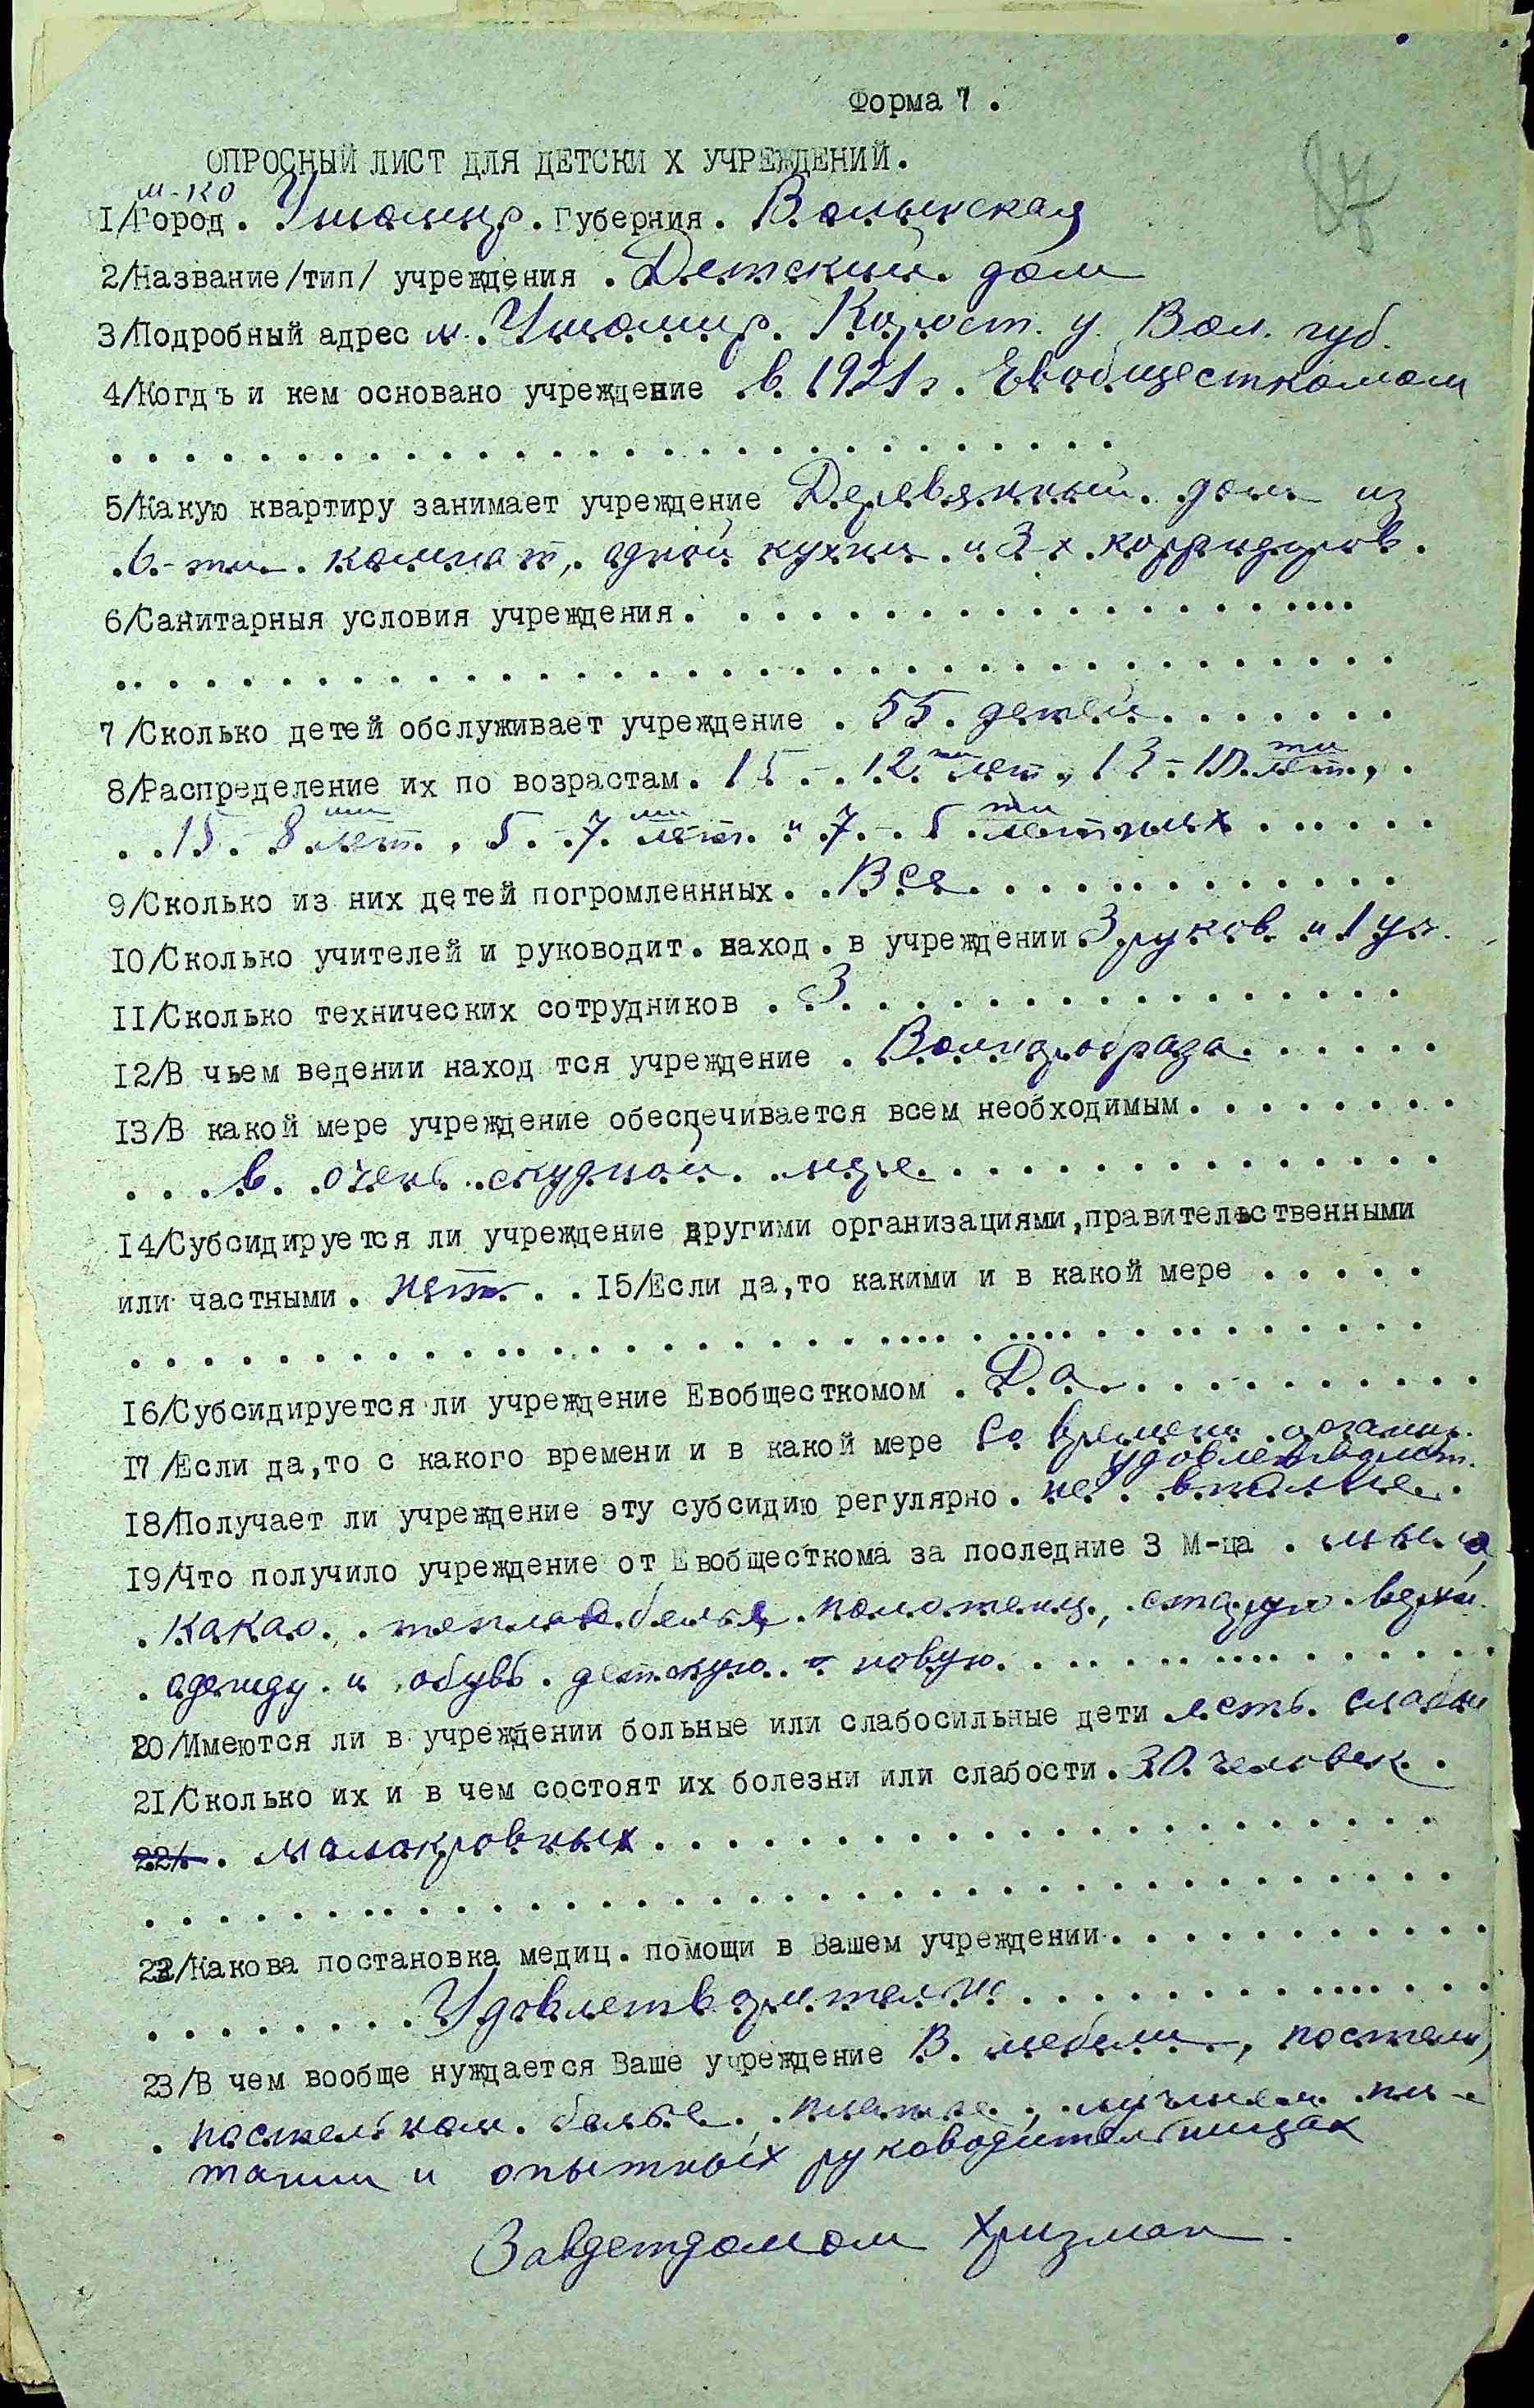 Форма 7 .
87
ОПРОСНЫЙ ЛИСТ ДЛЯ ДЕТСКИ Х УЧРЕЖДЕНИЙ.
м-ко
1/Город. Ушомир. Губерния. Волынская
2/Название/тип/ учреждения . Детский дом
3/Подробный адрес м. Ушомир. Корост. у. Вол. губ.
4/Когдъ и кем основано учреждение в 1921 г. Евобщесткомом
5/Какую квартиру занимает учреждение Деревянный дом из
6-ти комнат, одной кухни и 3-х корридоров.
6/Санитарныя условия учреждения.
7/Сколько детей обслуживает учреждение . 55 детей
8/Распределение их по возрастам. 15 - 12 ти лет, 13 - 10 ти лет,
15 - 8 ми лет, 5 - 7 ми лет и 7 - 5 ти летних
9/Сколько из них детей погромленнных. Все
10/Сколько учителей и руководит. наход. в учреждении 3 руков. и 1 уч.
11/Сколько технических сотрудников . 3
12/В чьем ведении наход тся учреждение . Волнаробраза
13/В какой мере учреждение обеспечивается всем необходимым.
в очень скудной мере
14/Субсидируется ли учреждение другими организациями,правительственными
или частными. нет. . . 15/Если да,то какими и в какой мере
16/Субсидируется ли учреждение Евобщесткомом . Да
17/Если да,то с какого времени и в какой мере Со времени организ.
удовлетворит.
18/Получает ли учреждение эту субсидию регулярно. не вполне.
19/Что получило учреждение от Евобщесткома за последние 3 М-ца . мыло,
какао, теплое белье, полотенц, старую верхн.
одежду и обувь детскую - новую
20/Имеются ли в учреждении больные или слабосильные дети есть слабые
21/Сколько их и в чем состоят их болезни или слабости. 30 человек.
22/. малокровных
22/Какова постановка медиц. помощи в Вашем учреждении.
Удовлетворительно
23/В чем вообще нуждается Ваше учреждение В мебели, постели,
постельном белье, платье, лучшем пи-
тании и опытных руководительницах
Завдетдомом Хризман.